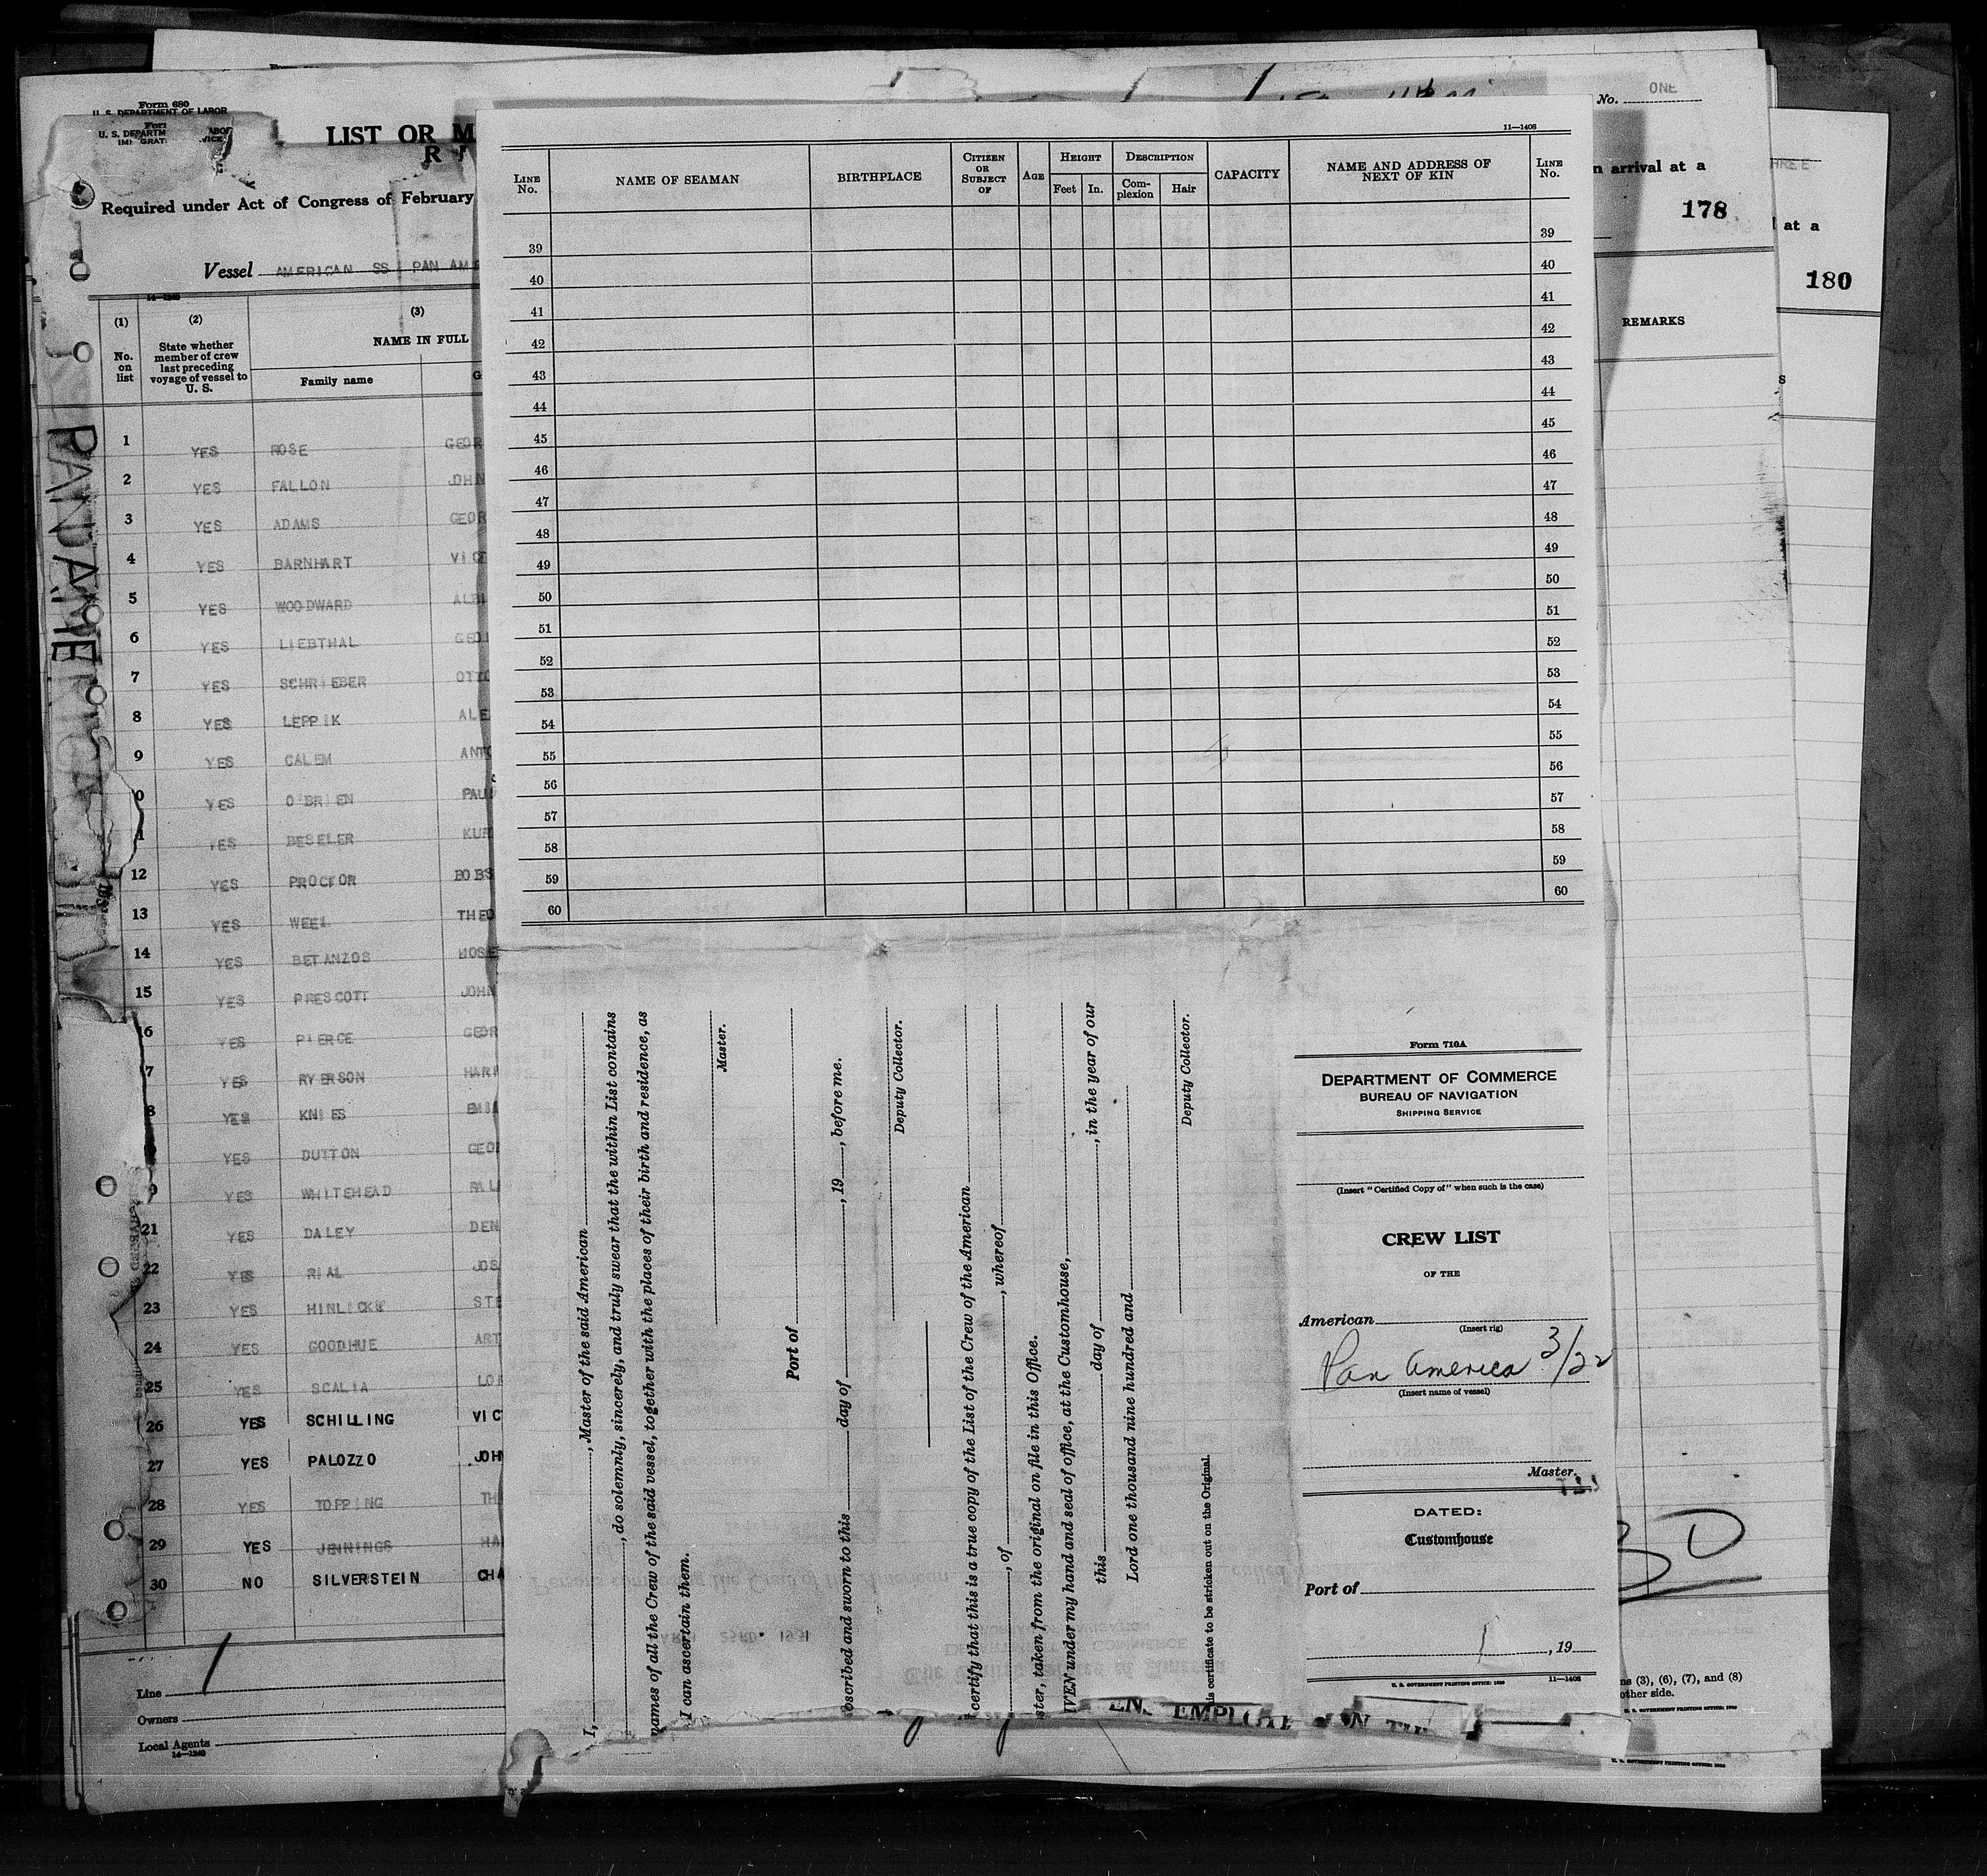 Form 680
U. S. DEPARTMENT OF LABOR
LIST OR M
Required under Act of Congress of February
Vessel AMERICAN SS PAN AME
(1) (2) (3)
No. on list
State whether member of crew last preceding voyage of vessel to U. S.
NAME IN FULL
Family name
1 YES ROSE GEOR
2 YES FALLON JOHN
3 YES ADAMS GEOR
4 YES BARNHART VICT
5 YES WOODWARD ALBI
6 YES LIEBTHAL GEO
7 YES SCHRIEBER OTTO
8 YES LEPPIK ALE
9 YES CALEM ANTO
0 YES O'BRIEN PAUL
1 YES BESELER KUR
12 YES PROCTOR BOBS
13 YES WEEL THEO
14 YES BETANZOS MOSE
15 YES PRESCOTT JOHN
6 YES PIERCE GEOR
7 YES RYERSON HARR
8 YES KNIES EMIL
YES DUTTON GEOR
YES WHITEHEAD
21 YES DALEY DEN
22 YES RIAL JOS
23 YES STE
24 YES GOODHUE ART
25 YES SCALIA LO
26 YES SCHILLING VIC
27 YES PALOZZO JOH
28 YES TOPPING TH
29 YES JENNINGS HA
30 NO SILVERSTEIN CHA
Line
Owners
Local Agents
14—1240
PAN AME
11—1408
LINE No.
NAME OF SEAMAN
BIRTHPLACE
CITIZEN OR SUBJECT OF
AGE
HEIGHT
Feet In.
DESCRIPTION
Complexion Hair
CAPACITY
NAME AND ADDRESS OF NEXT OF KIN
LINE No.
39 39
40 40
41 41
42 42
43 43
44 44
45 45
46 46
47 47
48 48
49 49
50 50
51 51
52 52
53 53
54 54
55 55
56 56
57 57
58 58
59 59
60 60
I, , Master of the said American
, do solemnly, sincerely, and truly swear that the within List contains
names of all the Crew of the said vessel, together with the places of their birth and residence, as
I can ascertain them.
Master.
Port of
bscribed and sworn to this day of , 19 , before me.
Deputy Collector.
certify that this is a true copy of the List of the Crew of the American
, of , whereof
ster, taken from the original on file in this Office.
IVEN under my hand and seal of office, at the Customhouse,
this day of , in the year of our
Lord one thousand nine hundred and
Deputy Collector.
is certificate to be stricken out on the Original.
Form 710A
DEPARTMENT OF COMMERCE
BUREAU OF NAVIGATION
SHIPPING SERVICE
(Insert "Certified Copy of" when such is the case)
CREW LIST
OF THE
American
(Insert rig)
Pan America 3/22
(Insert name of vessel)
Master.
DATED:
Customhouse
Port of
, 19
U. S. GOVERNMENT PRINTING OFFICE 11—1408
No. ONE
n arrival at a
178
REMARKS
at a
180
ns (3), (6), (7), and (8)
other side.